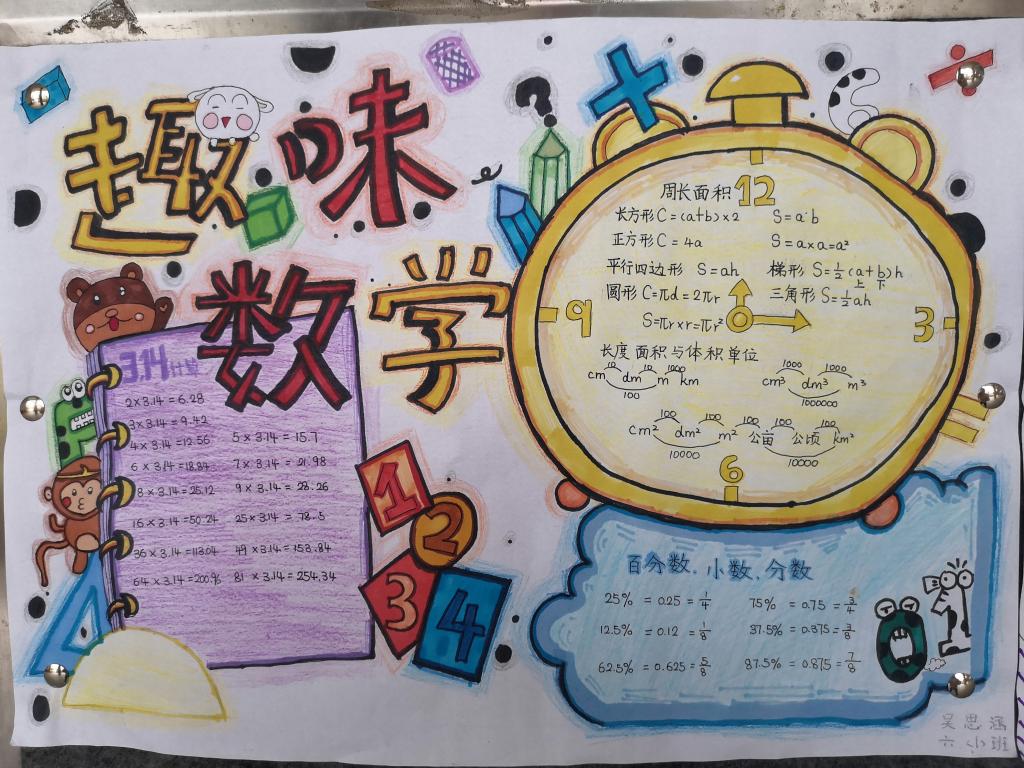 趣味
数学
3.14计算
2×3.14=6.28
3×3.14=9.42
4×3.14=12.56 5×3.14=15.7
6×3.14=18.84 7×3.14=21.98
8×3.14=25.12 9×3.14=28.26
16×3.14=50.24 25×3.14=78.5
36×3.14=113.04 49×3.14=153.84
64×3.14=200.96 81×3.14=254.34
1
2
3
4
12
3
6
9
周长面积
长方形C=(a+b)×2 S=a·b
正方形C=4a S=a×a=a²
平行四边形 S=ah 梯形 S=½(a+b)h
上 下
圆形C=πd=2πr 三角形S=½ah
S=πr×r=πr²
长度面积与体积单位
10 10 1000
cm dm m km
100
1000
cm³ dm³ m³
1000000
100 100 100 100 100
cm² dm² m² 公亩 公顷 km²
10000 10000
百分数、小数、分数
25%=0.25=1/4 75%=0.75=3/4
12.5%=0.12=1/8 37.5%=0.375=3/8
62.5%=0.625=5/8 87.5%=0.875=7/8
吴思涵
六小班